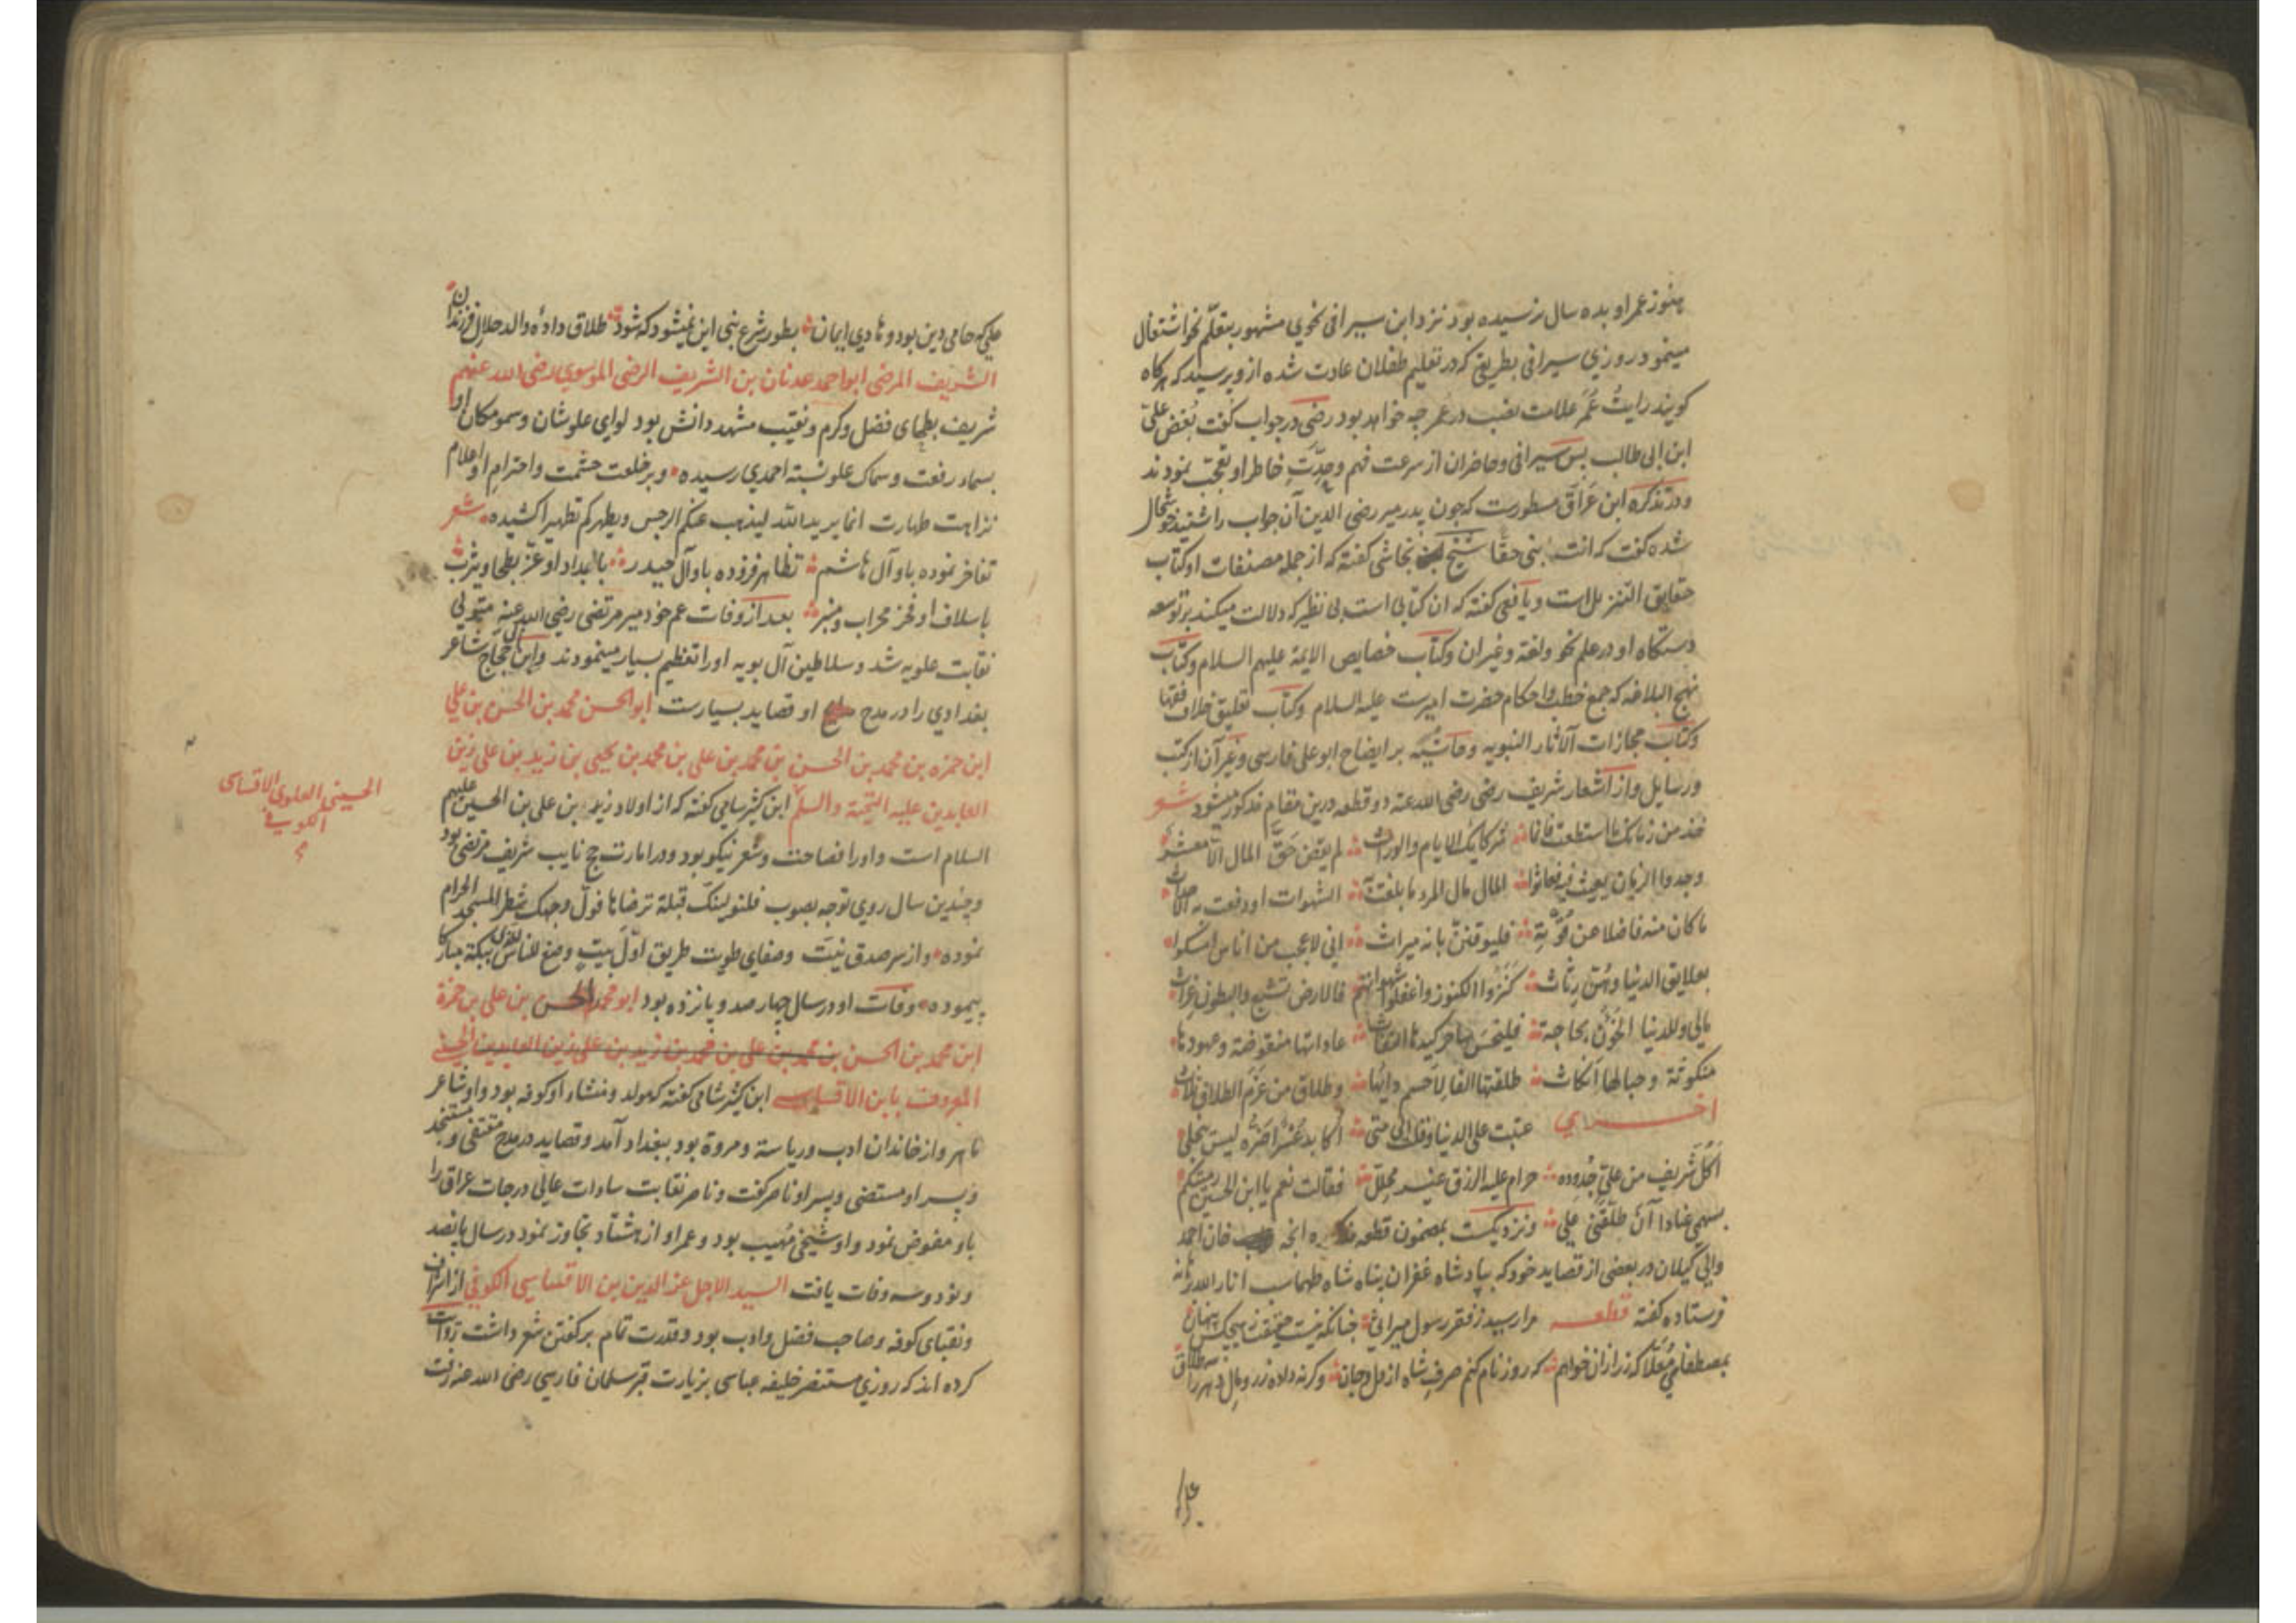 هنوز عمر او بده سال نرسیده بود نزد ابن سیرافی نحوی مشهور بتعلّم نحو اشتغال
مینمود روزی سیرافی بطریقی که در تعلیم طفلان عادت شده از و پرسید که هرگاه
کویند رایتُ عُمَرَ علامت نصب در عمر چه خواهد بود رضی در جواب گفت بُغض علیّ
ابن ابی طالب پس سیرافی و حاضران از سرعت فهم و حِدّتِ خاطر او تعجّب نمودند
و در تذکره ابن عَرَاق مسطورست که چون پدر میر رضی الدین آن جواب را شنید خوشحال
شده گفت که انت ابنی حقّا شیخ نجاشی گفته که از جمله مصنفات او کتاب
حقایق التنزیل است و یافعی گفته که ان کتابی است بی نظیر که دلالت میکند بر توسعه
دستکاه او در علم نحو و لغة و غیر ان و کتاب خصایص الایمة علیهم السلام و کتاب
نهج البلاغه که جمع خطب و احکام حضرت امیرست علیه السلام و کتاب تعلیق خلاف فقها
و کتاب مجازات الآثار النبویه و حاشیه بر ایضاح ابو علی فارسی و غیر آن از کتب
و رسایل و از اشعار شریف رضی رضی الله عنه دو قطعه درین مقام مذکور میشود شعر
خذ من زمانک ما استطعت فانما شرکایک الایام والوراث لم یقض حَقَّ المال الّا معشرٌ
وجدوا الزمان یعیث فیه فعاثوا المال مال المرء ما بلغت به الشهوات او دفعت به الاحداث
ما کان منه فاضلا عن قُوتِهِ فلیوقننَّ بانه میراث انی لاعجب من اناس امسکوا
بعلایق الدنیا وهُنَّ رِثاث کَنَزُوا الکنوز واغفلوا شهواتهم فالارض تشبع والبطون غراث
مالی وللدنیا الخؤن بحاجة فلیخس ساحر کیدها النفاث عاداتها منقوضة وعهودها
منکوثة وحبالها انکاث طلقتها الفا لأحسم دائها وطلاق من عَزَمَ الطلاق ثلاث
اخری عتبت علی الدنیا وقلت الی متی اکابد عُسْرًا ضرّه لیس ینجلی
اکُلُّ شَریف من علیٍّ جُدُوده حرام علیه الرزق غیر محلل فقالت نعم یا ابن الحسین رمیتکم
بسهمی عنادا آن طَلّقَنِی علی و نزدیکست بمضمون قطعه انچه خان احمد
والی گیلان در بعضی از قصاید خود که بپادشاه غفران پناه شاه طهماسب انار الله برهانه
فرستاده گفته قطعه مرا رسید ز فقر رسول میراثی چنانکه نیست حقیقت ز هیچکس پنهان
بمصطفای مُعَلّا که زر ازان خواهم که روز نام کنم صرف شاه از دل و جان و گرنه داده زر و مال دهر را سه طلاق
علی
علی که حامی دین بود و هادی ایمان بطور شرع نبی این نمیشود که شود طلاق داده والد حلال فرزندان
الشریف المرضی ابو احمد عدنان بن الشریف الرضی الموسوی رضی الله عنهم
شریف بطحای فضل و کرم و نقیب مشهد دانش بود لوای علو شان و سمو مکان او
بسماء رفعت و سماک علو نسبة احمدی رسیده و بر خلعت حشمت و احترام او اعلام
نزاهت طهارت انما یرید الله لیذهب عنکم الرجس و یطهرکم تطهیرا کشیده شعر
تفاخر نموده باو آل هاشم تظاهر فزوده باو آل حیدر باجداد او عزّ بطحا و یثرب
باسلاف او فخر محراب و منبر بعد از وفات عم خود میر مرتضی رضی الله عنه متولی
نقابت علویه شد و سلاطین آل بویه او را تعظیم بسیار مینمودند و ابن حجّاج شاعر
بغدادی را در مدح او قصاید بسیارست ابو الحسن محمد بن الحسن بن علی
ابن حمزه بن محمد بن الحسن بن محمد بن علی بن محمد بن یحیی بن زید بن علی زین
العابدین علیه التحیة والسلم ابن کثیر شامی گفته که از اولاد زید بن علی بن الحسین علیهم
السلام است و او را فصاحت و شعر نیکو بود و در امارت حج نایب شریف مرتضی بود
و چندین سال روی توجه بصوب فلنولینک قبلة ترضاها فول وجهک شطر المسجد الحرام
نموده و از سر صدق نیّت و صفای طویت طریق اوّلَ بیتٍ وضع للناس للذی ببکة مبارکا
پیموده وفات او در سال چهارصد و پانزده بود ابو محمد الحسن بن علی بن حمزة
ابن محمد بن الحسن بن محمد بن علی بن محمد بن زید بن علی زین العابدین الحسینی
المعروف بابن الاقساسی ابن کثیر شامی گفته که مولد و منشاء او کوفه بود و او شاعر
ماهر و از خاندان ادب و ریاسة و مروة بود ببغداد آمد و قصاید در مدح مقتفی و مستنجد
و پسر او مستضی و پسر او ناصر گفت و ناصر نقابت سادات عالی درجات عراق را
باو مفوض نمود و او شیخی مُهیب بود و عمر او از هشتاد تجاوز نمود در سال پانصد
و نود و سه وفات یافت السید الاجل عز الدین بن الاقساسی الکوفی از اشراف
و نقبای کوفه و صاحب فضل و ادب بود و قدرت تمام بر گفتن شعر داشت روایت
کرده اند که روزی مستنصر خلیفه عباسی بزیارت قبر سلمان فارسی رضی الله عنه رفت
الحسینی العلوی الاقساسی
الکوفی